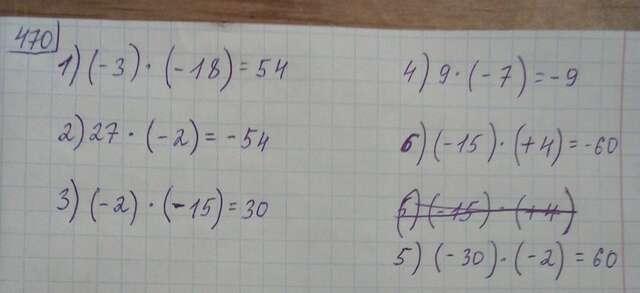 470
1) (-3) · (-18) = 54
2) 27 · (-2) = -54
3) (-2) · (-15) = 30
4) 9 · (-7) = -9
6) (-15) · (+4) = -60
6) (-15) · (+4)
5) (-30) · (-2) = 60